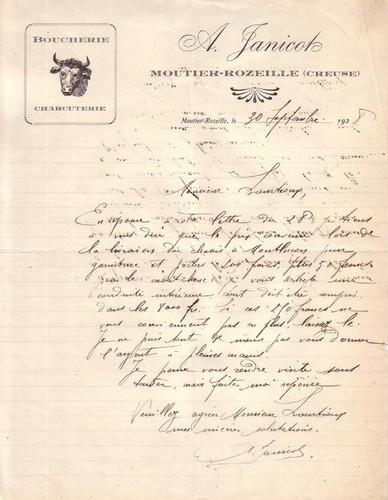 BOUCHERIE
CHARCUTERIE
A. Janicot
MOUTIER-ROZEILLE (CREUSE)
Moutier-Rozeille, le 30 Septembre 1928
Monsieur
En réponse à votre lettre du 28, je tiens
à vous dire que le prix convenu lors de
la livraison du chassis à Montluçon pour
garniture et
vous achète une
conduite intérieure tout doit être compris
dans les Si ces 250 francs ne
vous conviennent pas ni plus laissez le
Je ne puis tout de même pas vous donner
l'argent à pleines mains.
Je pense vous rendre visite sous
tarder, mais faites moi réponse
Veuillez agréer Monsieur
mes sincères salutations.
A. Janicot